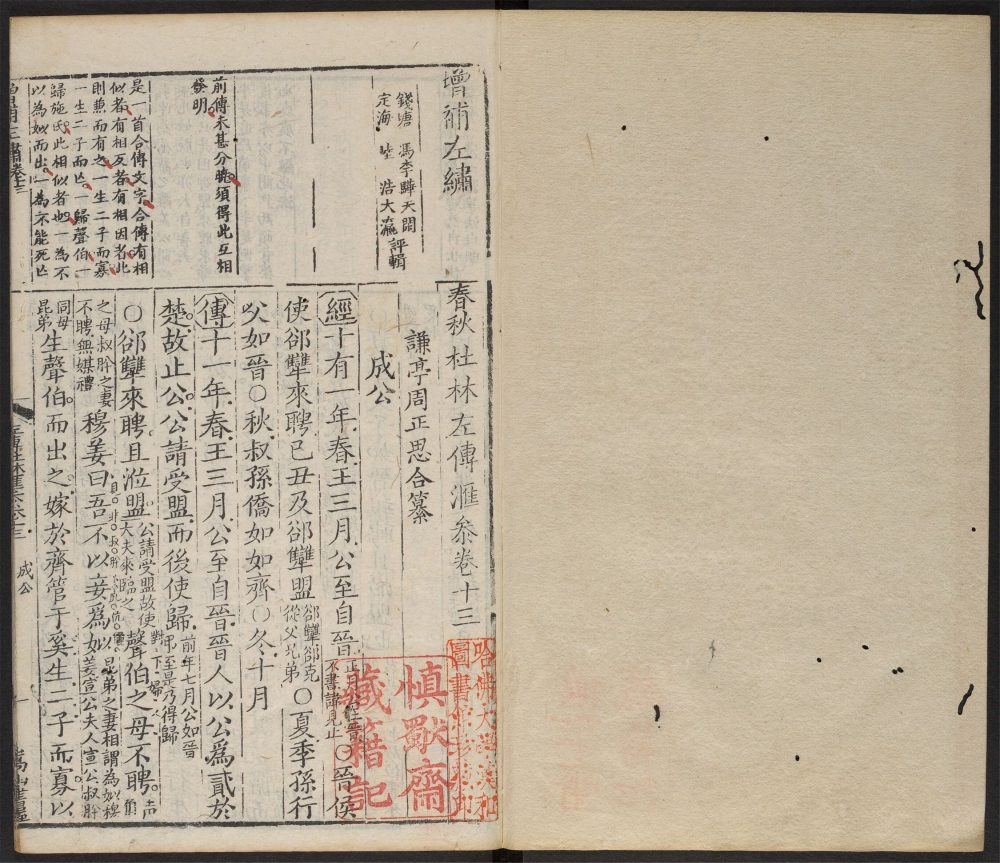 增補左繡
錢塘 馮李驊天閑
定海 浩大瀛 評輯
前傳未甚分曉須得此互相
發明
是一首合傳文字合傳有相
似者有相反者有相因者此
則兼而有之一生二子而寡
一生二子而亡一歸聲伯一
歸施氏此相似者也一為不
以為姒而出一為不能死亡
春秋杜林左傳滙叅卷十三
謙亭周正思合纂
成公
經十有一年春王三月公至自晉正月公在晉不書諱見止〇晉侯
使郤犨來聘已丑及郤犨盟郤犨郤克從父兄弟〇夏季孫行
父如晉〇秋叔孫僑如如齊〇冬十月
傳十一年春王三月公至自晉晉人以公爲貳於
楚故止公公請受盟而後使歸前年七月公如晉弔至是乃得歸
〇郤犨來聘且涖盟公請受盟故使大夫來臨之聲伯之母不聘聲伯
之母叔肸之妻不聘無媒禮穆姜曰吾不以妾爲姒昆弟之妻相謂為姒穆姜宣公夫人宣公叔肸
同母昆弟生聲伯而出之嫁於齊管于奚生二子而寡以
成公
慎獸齋
藏籍記
哈佛大學漢和
圖書館珍藏印